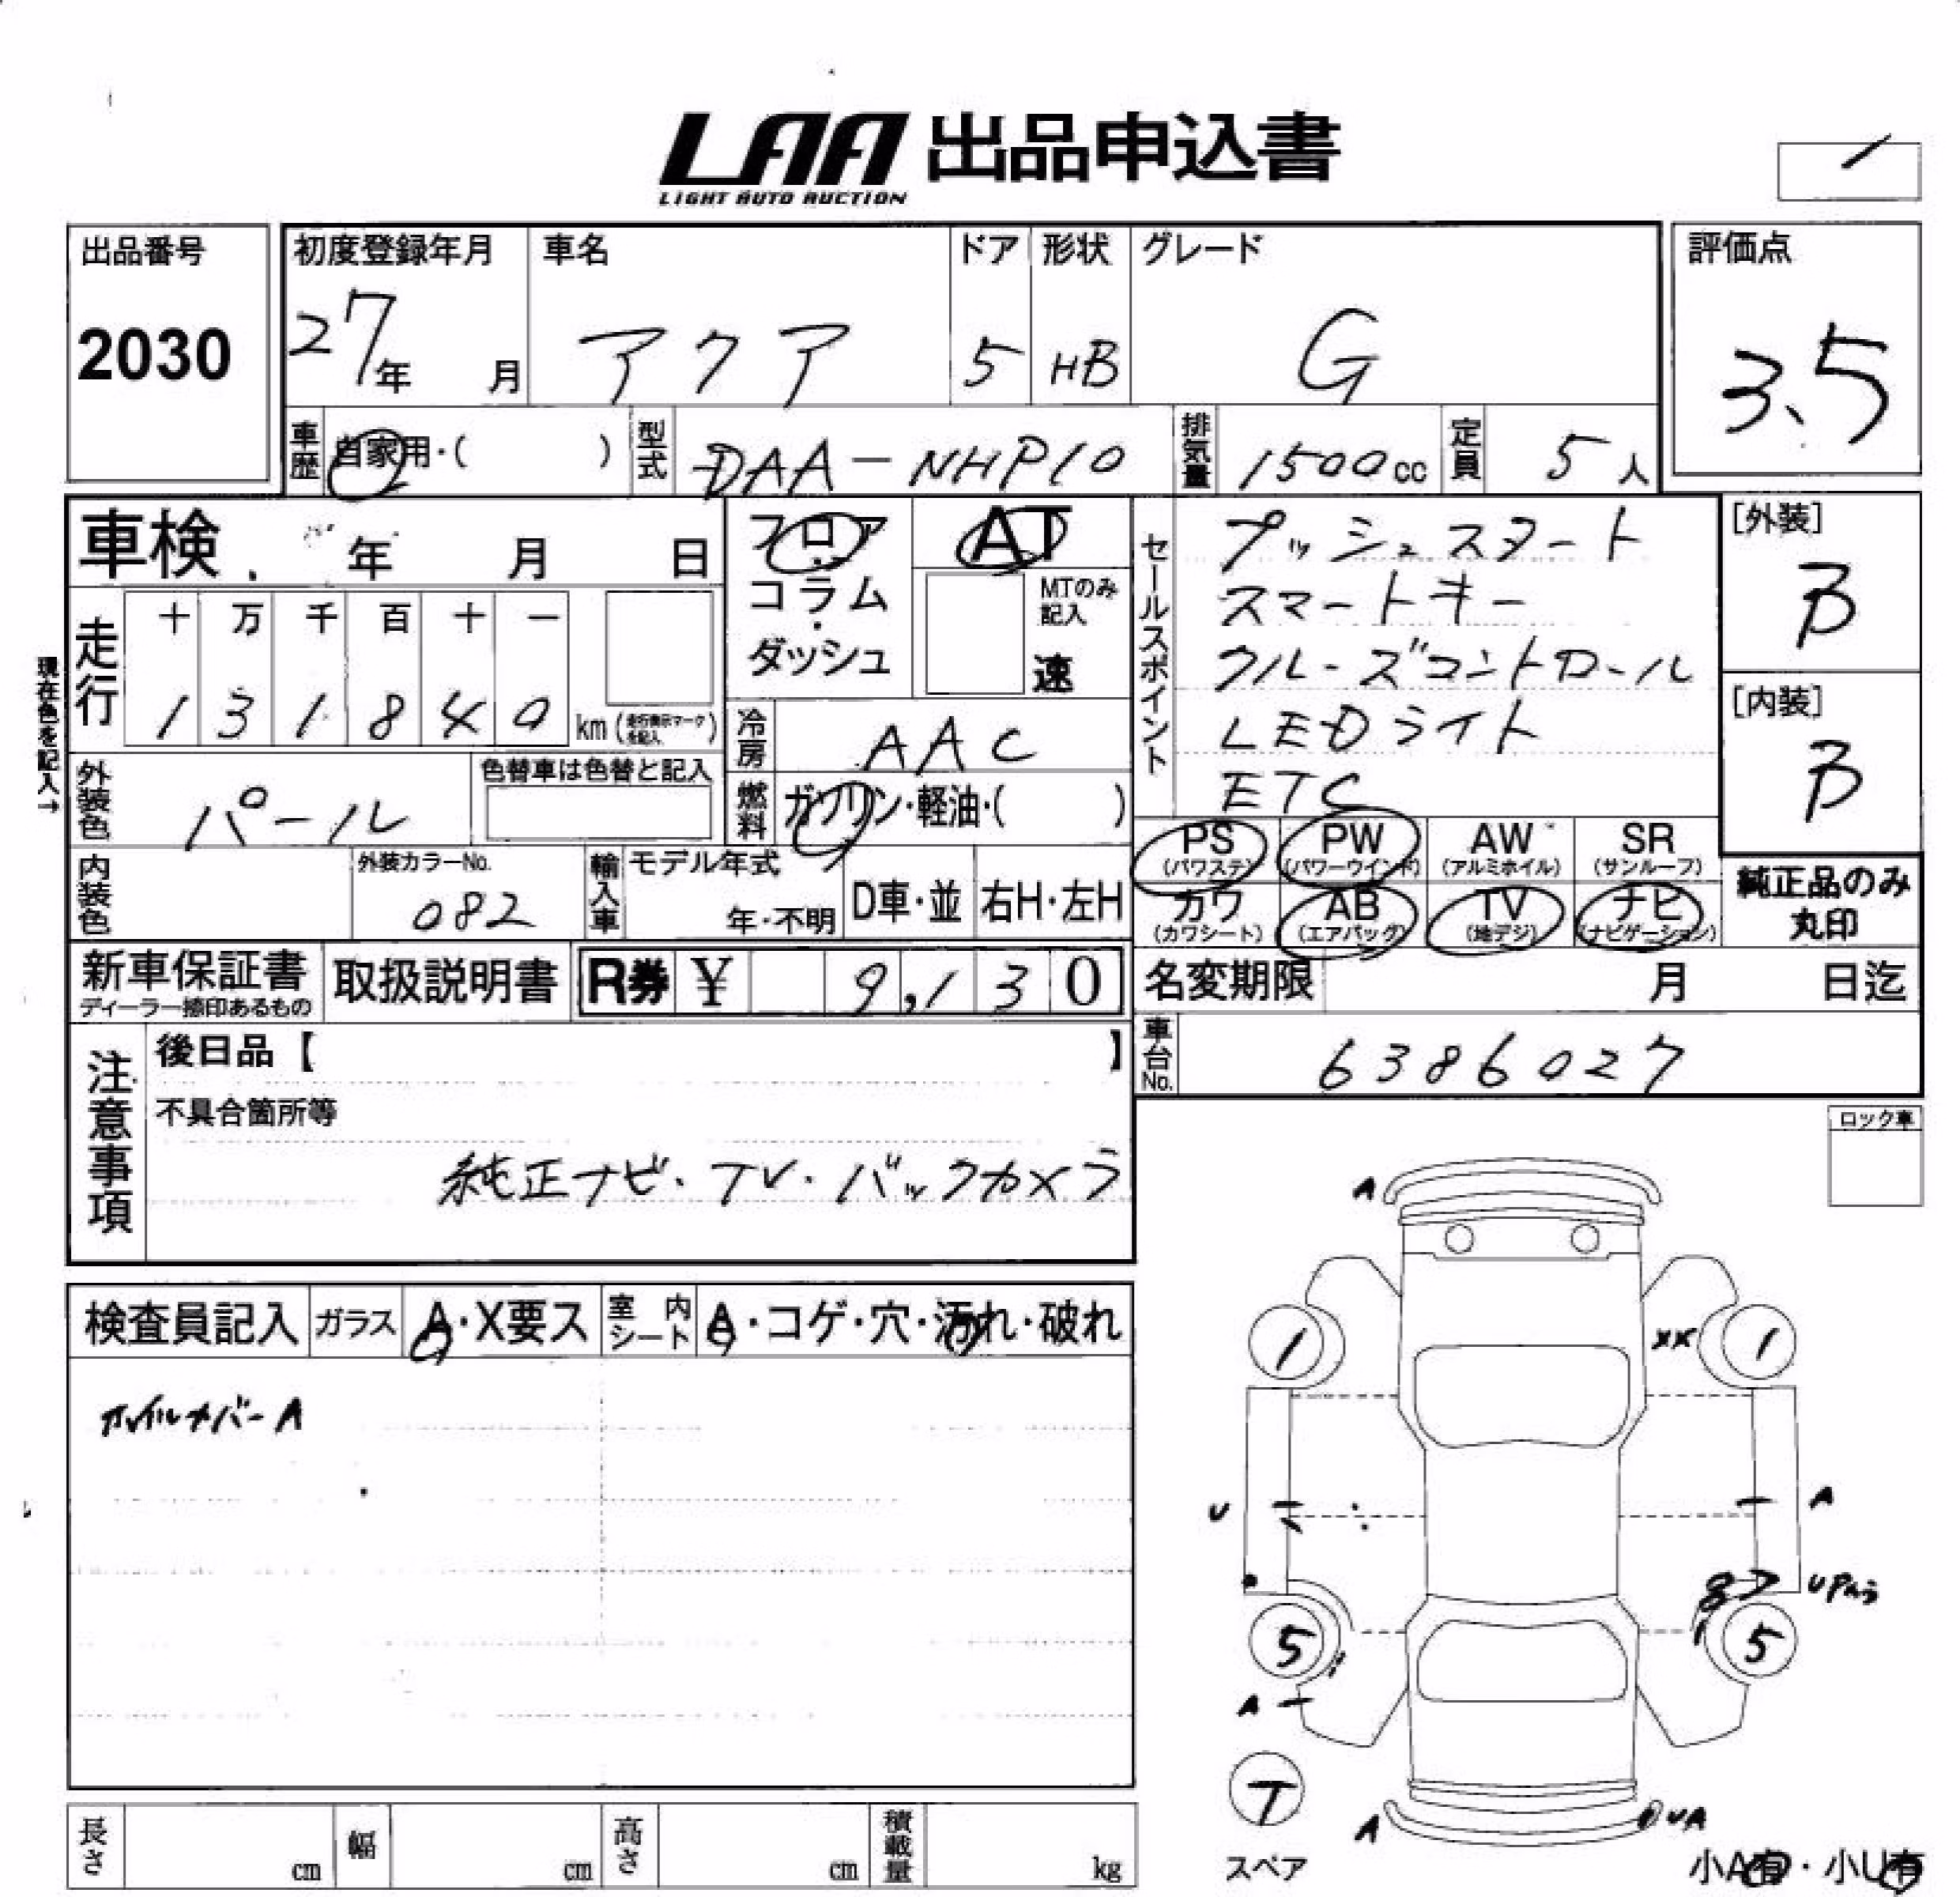 LAA 出品申込書
LIGHT AUTO AUCTION
出品番号
2030
初度登録年月
27年 月
車名
アクア
ドア
5
形状
HB
グレード
G
評価点
3.5
車歴 自家用・( )
型式 DAA-NHP10
排気量 1500cc
定員 5人
車検 年 月 日
フロア
コラム
・
ダッシュ
AT
MTのみ
記入
速
セールスポイント
プッシュスタート
スマートキー
クルーズコントロール
LEDライト
ETC
[外装]
B
[内装]
B
現在色を記入→
走行
十 万 千 百 十 一
1 3 1 8 4 0 km (走行表示マークを記入)
冷房 AAC
燃料 ガソリン・軽油・( )
外装色 パール
色替車は色替と記入
内装色
外装カラーNo.
082
輸入車
モデル年式
年・不明
D車・並
右H・左H
PS
(パワステ)
PW
(パワーウインド)
AW
(アルミホイル)
SR
(サンルーフ)
カワ
(カワシート)
AB
(エアバッグ)
TV
(地デジ)
ナビ
(ナビゲーション)
純正品のみ
丸印
新車保証書
ディーラー捺印あるもの
取扱説明書
R券 ¥ 9,130
名変期限 月 日迄
車台No. 6386027
注意事項
後日品【 】
不具合箇所等
純正ナビ・TV・バックカメラ
ロック車
検査員記入
ガラス A・X要ス
室内シート A・コゲ・穴・汚れ・破れ
ホイルカバーA
A
1
XX
1
U
A
5
5
A
T
スペア
A
UA
小A有・小U有
長さ cm
幅 cm
高さ cm
積載量 kg